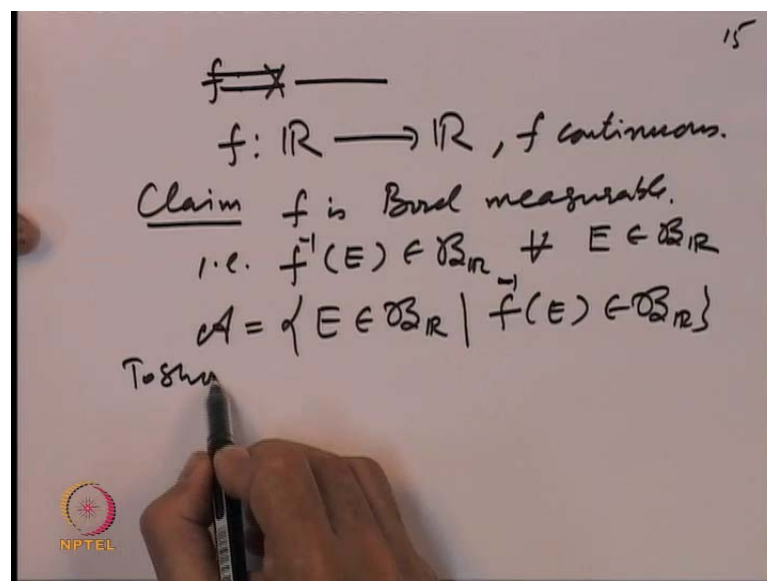 15
f : ℝ ⟶ ℝ , f continuous.
Claim f is Borel measurable.
i.e. f⁻¹(E) ∈ 𝓑_ℝ ∀ E ∈ 𝓑_ℝ
𝒜 = { E ∈ 𝓑_ℝ | f⁻¹(E) ∈ 𝓑_ℝ }
To show
NPTEL